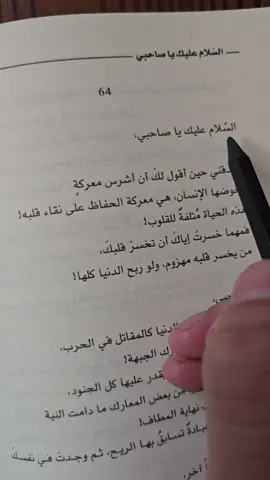 السّلام عليك يا صاحبي
64
السّلام عليك يا صاحبي،
حين أقول لكَ أن أشرس معركةٍ
الإنسان، هي معركة الحفاظ على نقاء قلبه!
الحياة مُتلفةٌ للقلوب!
فمهما خسرتَ إياكَ أن تخسرَ قلبكَ،
من يخسر قلبه مهزوم، ولو ربح الدنيا كلها!
الدنيا كالمقاتل في الحرب،
الجبهة!
عليها كل الجنود،
من بعض المعارك ما دامت النية
نهاية المطاف!
تسابقُ بها الريح، ثم وجدتَ في نفسكَ
آخر،